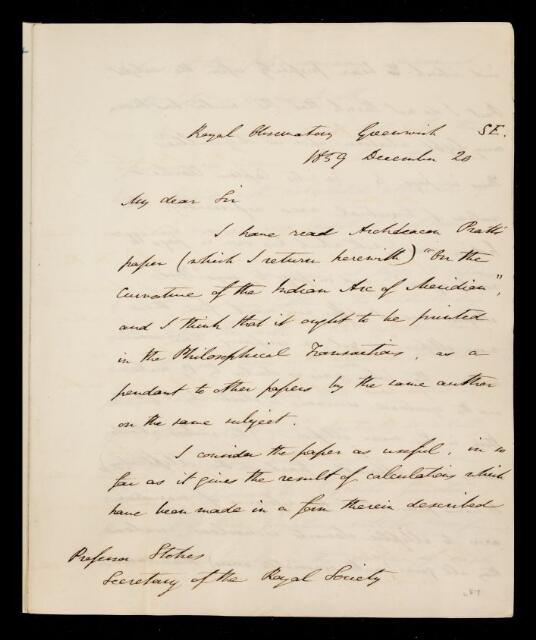 Royal Observatory Greenwich S.E.
1859 December 20
My dear Sir
I have read Archdeacon Pratt's
paper (which I return herewith) "On the
Curvature of the Indian Arc of Meridian",
and I think that it ought to be printed
in the Philosophical Transactions, as a
pendant to other papers by the same author
on the same subject.
I consider the paper as useful, in so
far as it gives the result of calculations which
have been made in a form therein described
Professor Stokes
Secretary of the Royal Society